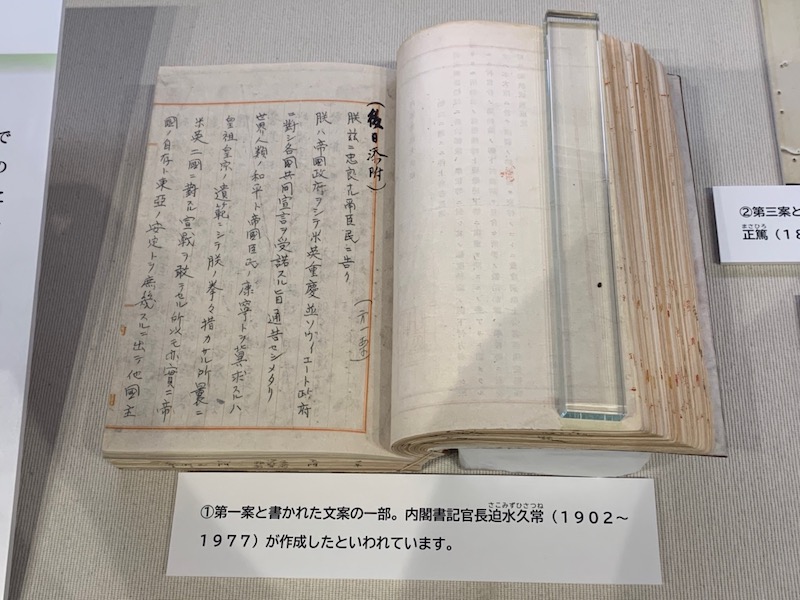 (後日添附)
(第一案)
朕茲ニ忠良ナル帝臣民ニ告ク
朕ハ帝國政府ヲシテ米英重慶並ソヴィエート政府
ニ對シ各國共同宣言ヲ受諾スル旨通告セシメタリ
世界人類ノ和平ト帝國臣民ノ康寧トヲ冀求スルハ
皇祖皇宗ノ遺範ニシテ朕ノ拳々措カサル所曩ニ
米英二國ニ對スル宣戰ヲ敢テセル所以モ亦實ニ帝
國ノ自存ト東亞ノ安定トヲ庶幾スルニ出テ他國主
①第一案と書かれた文案の一部。内閣書記官長迫水久常(1902〜
1977)が作成したといわれています。
②第三案と
正篤(18